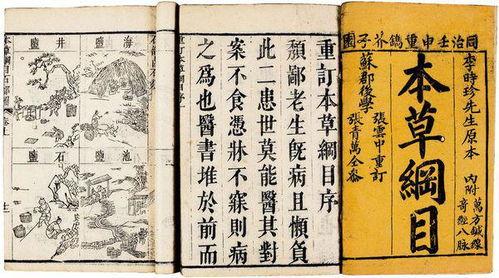 同治壬申重鐫芥子園
李時珍先生原本
內附萬方鍼線
奇經八脉
本草綱目
張雲中重訂
蘇郡後學
張青萬全參
重訂本草綱目序
頹鄙老生既病且懶負
此二患世莫能醫其對
案不食憑牀不寐則病
之爲也醫書堆於前而
重訂本草綱目序
海鹽
井鹽
池鹽
石鹽
本草綱目